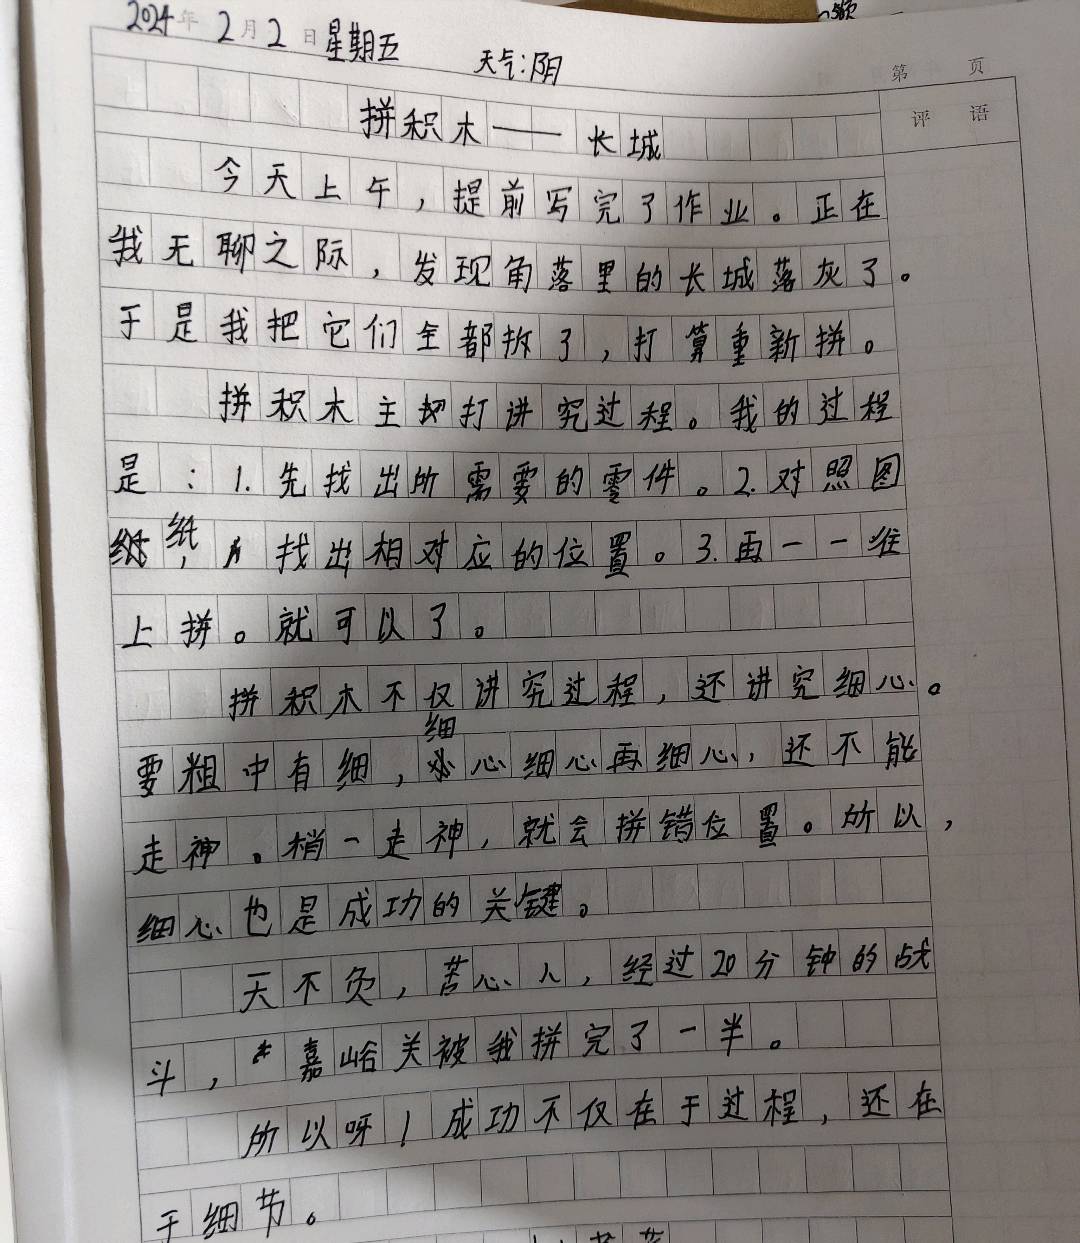 2024年2月2日星期五 天气:阴
第 页
评 语
拼积木——长城
今天上午，提前写完了作业。正在
我无聊之际，发现角落里的长城落灰了。
于是我把它们全部拆了，打算重新拼。
拼积木主要打讲究过程。我的过程
是：1.先找出所需要的零件。2.对照图
纸，找出相对应的位置。3.再一一往
上拼。就可以了。
拼积木不仅讲究过程，还讲究细心。
要粗中有细，细心细心再细心，还不能
走神。稍一走神，就会拼错位置。所以，
细心也是成功的关键。
天不负，苦心人，经过20分钟的战
斗，嘉峪关被我拼完了一半。
所以呀！成功不仅在于过程，还在
于细节。